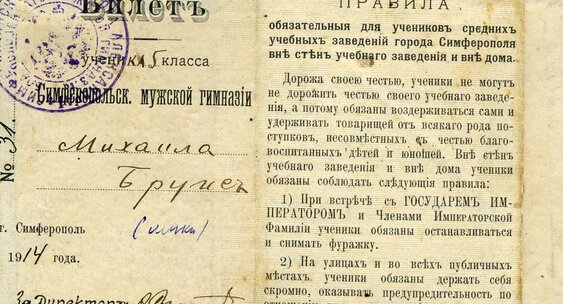 Билетъ
ученика 5 класса
Симферопольск. мужской гимназіи
№ 31
Михаила
г. Симферополь
1914 года.
За Директора
ПРАВИЛА,
обязательныя для учениковъ среднихъ
учебныхъ заведеній города Симферополя
внѣ стѣнъ учебнаго заведенія и внѣ дома.
Дорожа своею честью, ученики не могутъ
не дорожить честью своего учебнаго заведе-
нія, а потому обязаны воздерживаться сами и
удерживать товарищей отъ всякаго рода по-
ступковъ, несовмѣстныхъ съ честью благо-
воспитанныхъ дѣтей и юношей. Внѣ стѣнъ
учебнаго заведенія и внѣ дома ученики
обязаны соблюдать слѣдующія правила:
1) При встрѣчѣ съ ГОСУДАРЕМЪ ИМ-
ПЕРАТОРОМЪ и Членами Императорской
Фамиліи ученики обязаны останавливаться
и снимать фуражку.
2) На улицахъ и во всѣхъ публичныхъ
мѣстахъ ученики обязаны держать себя
скромно, оказывать предупредительность по